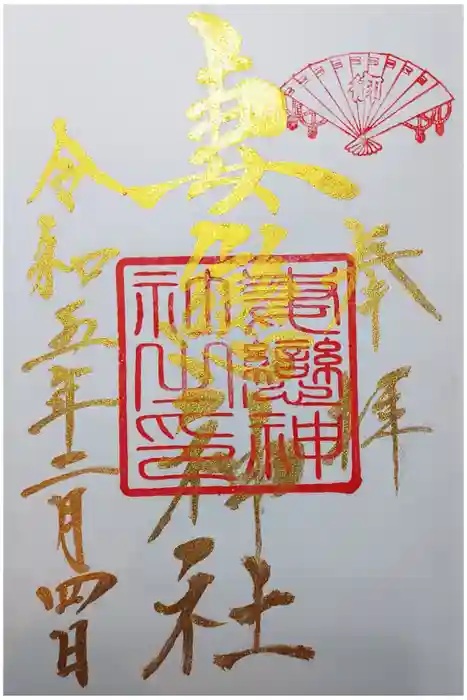 奉拝
妻戀神社
令和五年二月四日
妻戀神
社之印